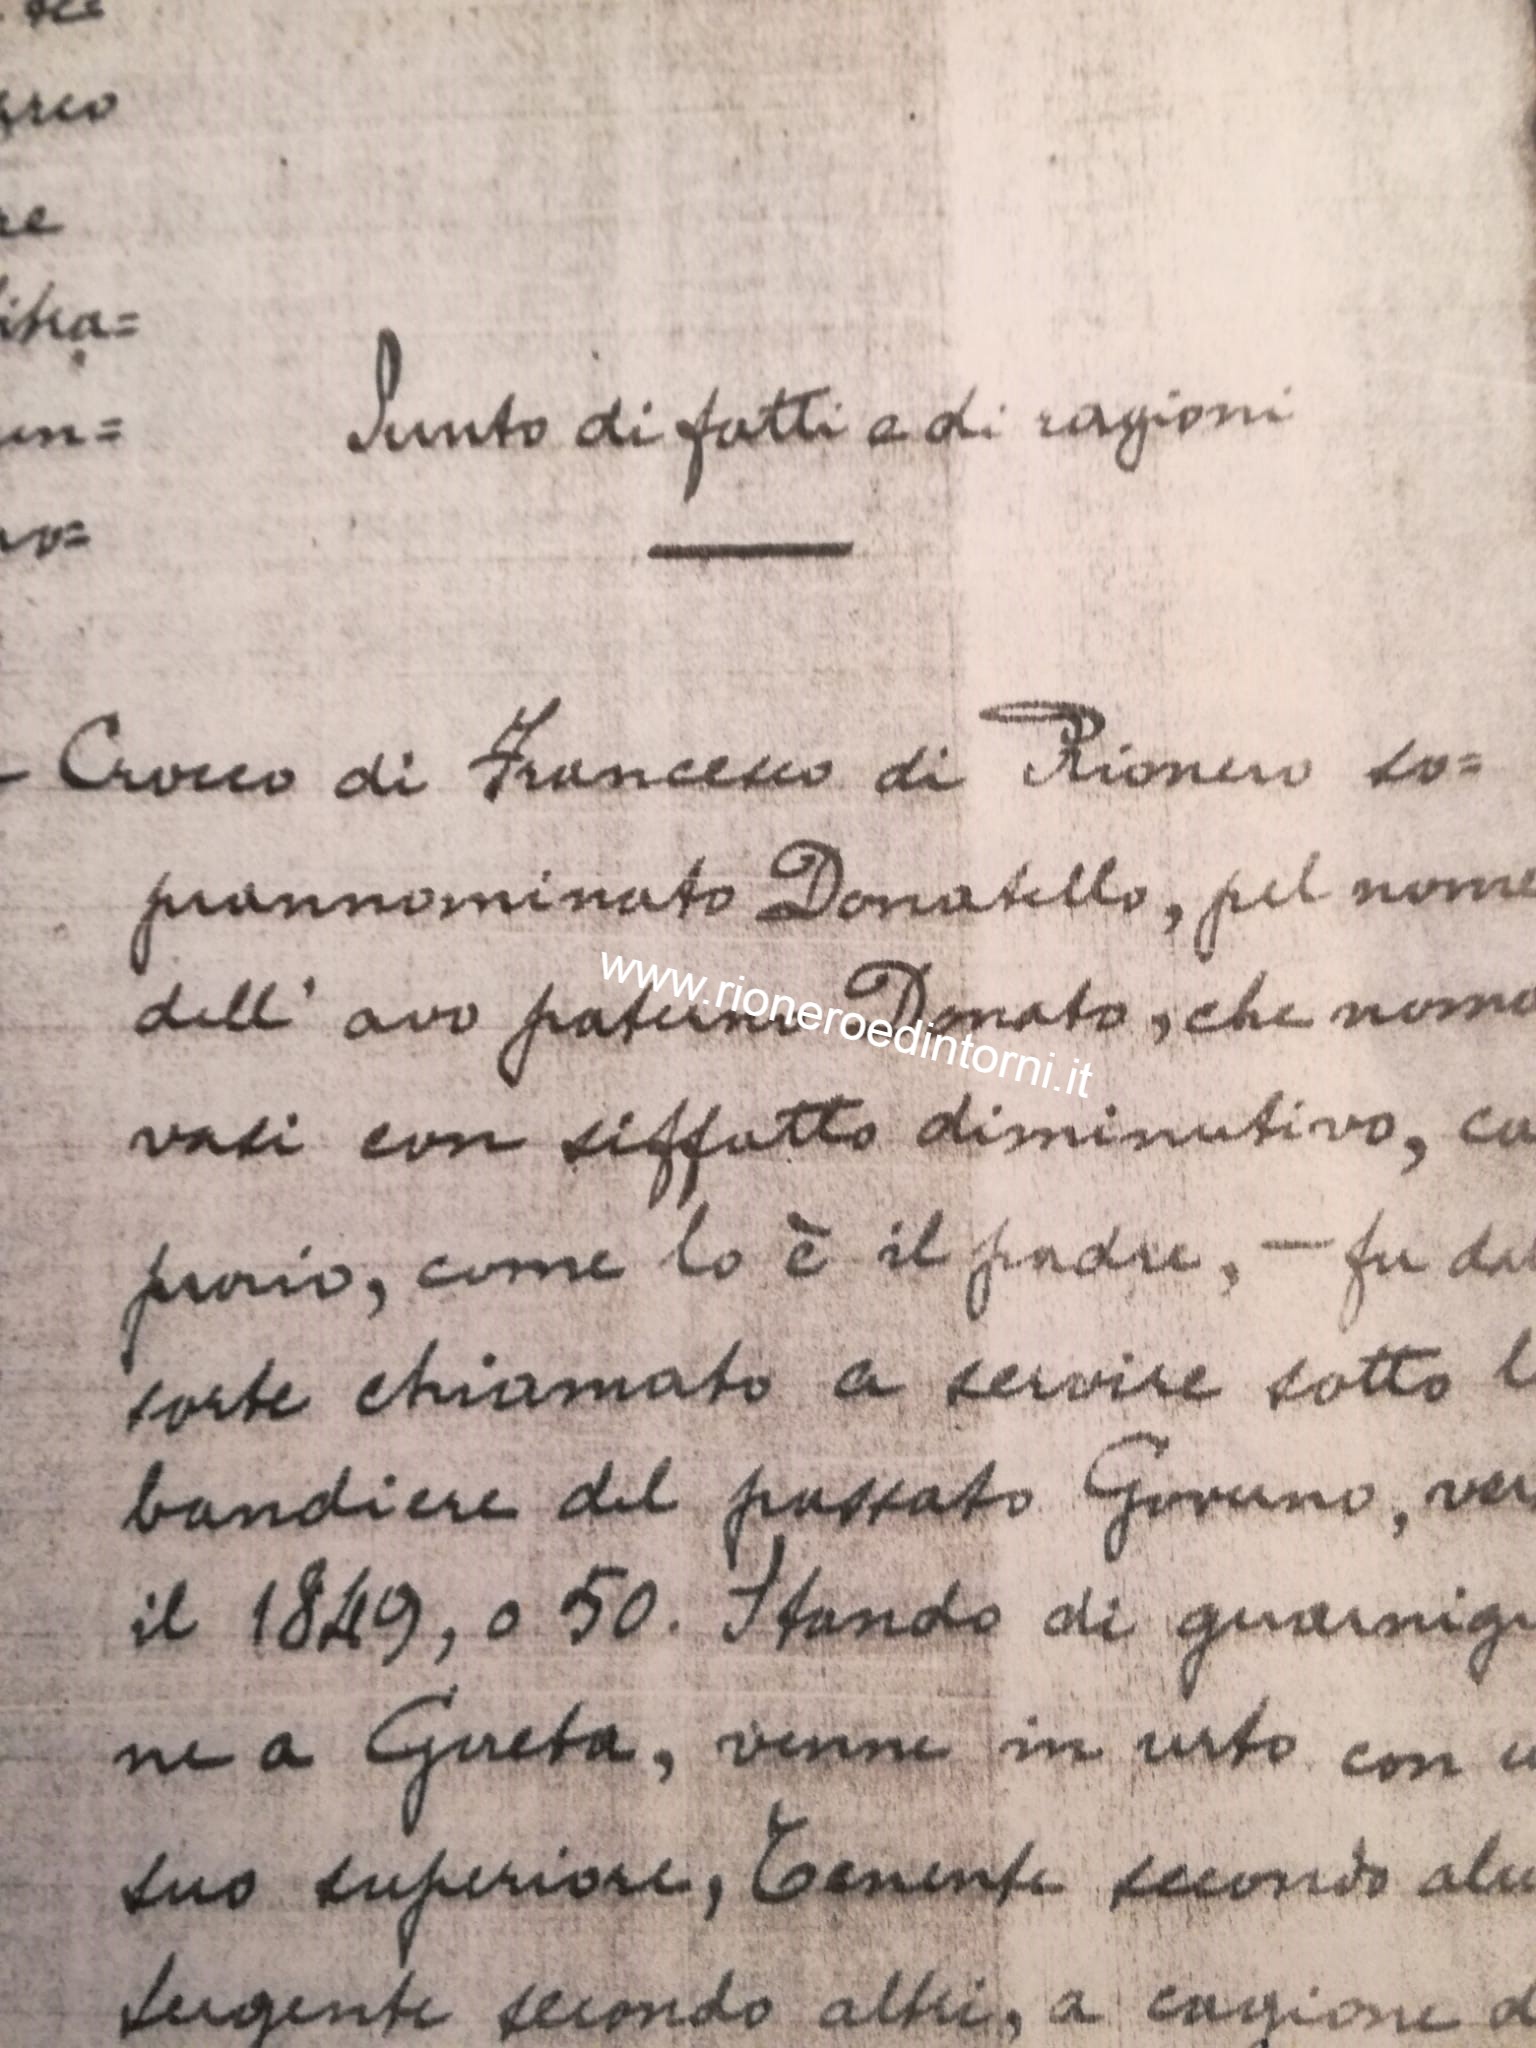 Sunto di fatti e di ragioni
Crocco di Francesco di Rionero so=
prannominato Donatello, pel nome
dell' avo paterno Donato, che noma
www.rioneroedintorni.it
vasi con siffatto diminutivo, ca
praio, come lo è il padre, — fu dal
sorte chiamato a servire sotto l
bandiere del passato Governo, ver
il 1849, o 50. Stando di guarnigi
ne a Gaeta, venne in urto con u
suo superiore, Tenente secondo alcu
Sergente secondo altri, a cagione d